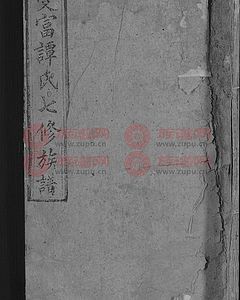 當譚氏七修族譜
族譜网 族譜网
www.zupu.cn www.zupu.cn
族譜网 族譜网
www.zupu.cn www.zupu.cn